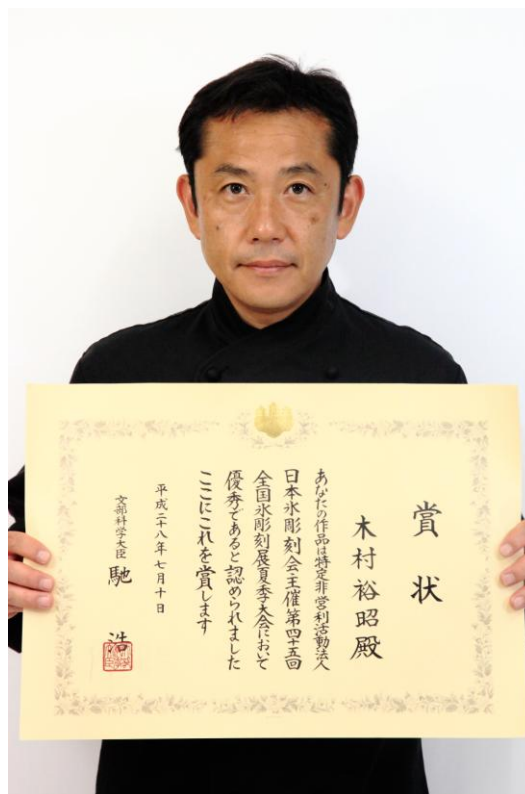 賞状
木村裕昭殿
あなたの作品は特定非営利活動法人
日本氷彫刻会主催第四十五回
全国氷彫刻展夏季大会において
優秀であると認められました
ここにこれを賞します
平成二十八年七月十日
文部科学大臣 馳 浩